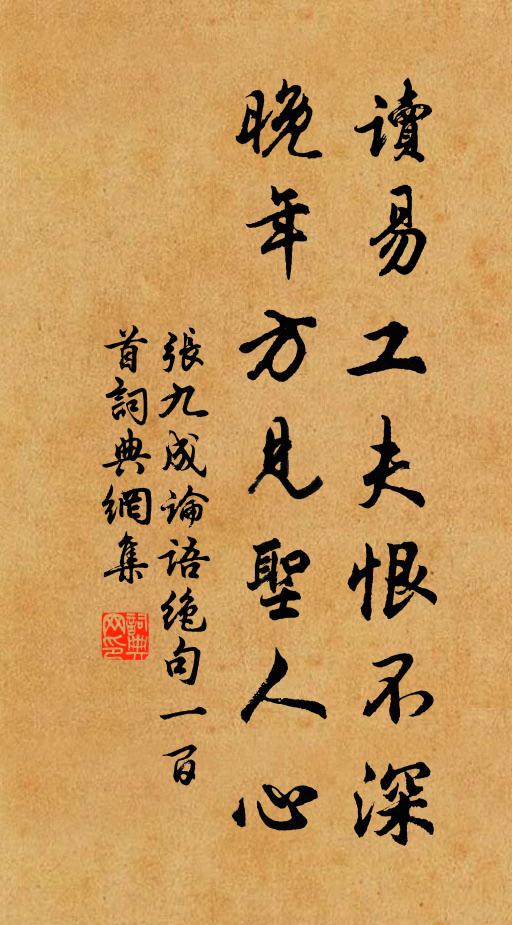 讀易工夫恨不深
晚年方見聖人心
張九成論語絶句一百
首詞典網集
詞典網印